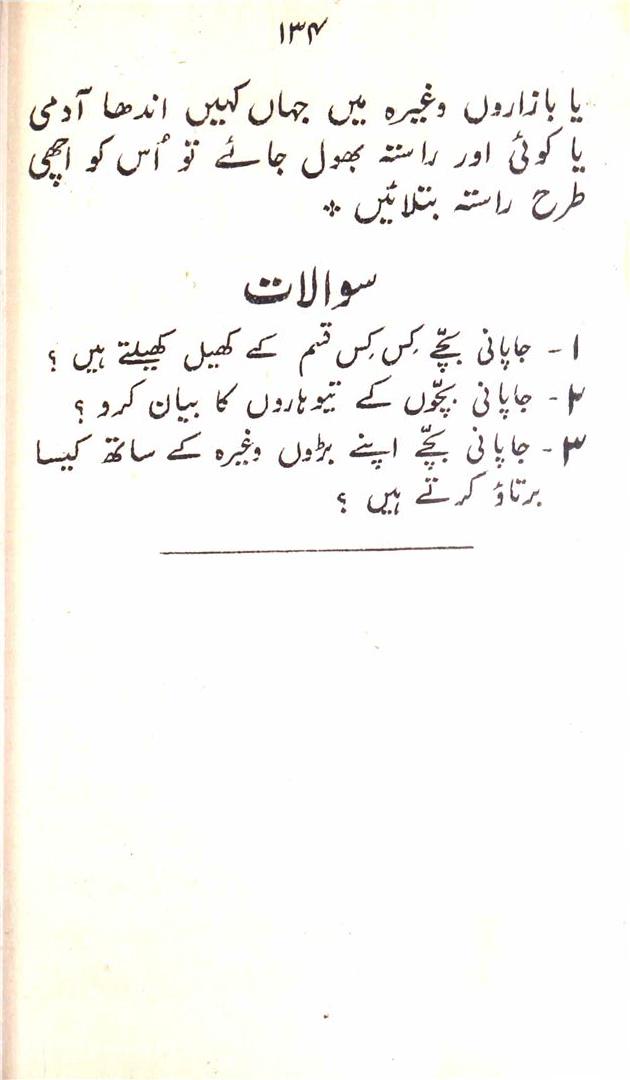 ۱۳۴
یا بازاروں وغیرہ میں جہاں کہیں اندھا آدمی
یا کوئی اور راستہ بھول جائے تو اُس کو اچھی
طرح راستہ بتلائیں ٭
سوالات
۱- جاپانی بچّے کِس کِس قسم کے کھیل کھیلتے ہیں ؟
۲- جاپانی بچّوں کے تیوہاروں کا بیان کرو ؟
۳- جاپانی بچّے اپنے بڑوں وغیرہ کے ساتھ کیسا
برتاؤ کرتے ہیں ؟